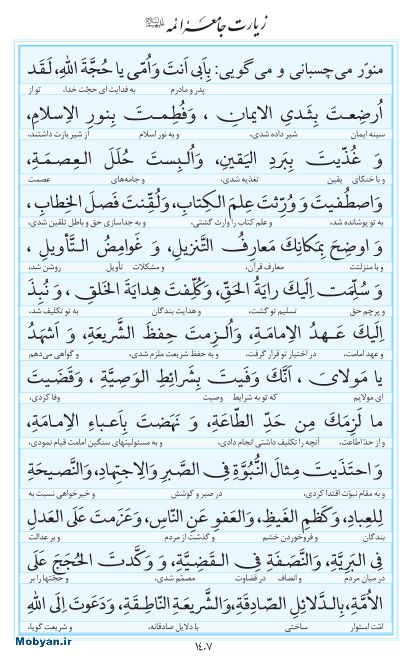 زیارت جامعۀ ائمه علیهم‌السلام
منوّر می‌چسبانی و می‌گویی: بِاَبی اَنتَ وَاُمّی یا حُجَّةَ اللهِ، لَقَد
پدر و مادرم به فدایت ای حجّت خدا، تو از
اُرضِعتَ بِثَدیِ الایمانِ ، وَفُطِمتَ بِنورِ الاِسلامِ،
سینه ایمان شیر داده شدی، و به نور اسلام از شیر بازت داشتند،
وَ غُذّیتَ بِبَردِ الیَقینِ، وَاُلبِستَ حُلَلَ العِصمَةِ،
و با خنکای یقین تغذیه شدی، و جامه‌های عصمت
وَاصطُفیتَ وَ وُرِّثتَ عِلمَ الکِتابِ، وَلُقِّنتَ فَصلَ الخِطابِ،
به تو پوشانده شد، و علم کتاب را وارث گشتی، و به جداسازی حق و باطل تلقین شدی،
وَ اوضِحَ بِمَکانِکَ مَعارِفُ التَّنزیلِ، وَ غَوامِضُ التَّأویلِ ،
و با منزلتت معارف قرآن، و مشکلات تأویل روشن شد،
وَ سُلِّمَت اِلَیکَ رایَةُ الحَقِّ، وَکُلِّفتَ هِدایَةَ الخَلقِ ، وَ نُبِذَ
و پرچم حق تسلیم تو گشت، و هدایت بندگان به تو تکلیف شد،
اِلَیکَ عَهدُ الاِمامَةِ، وَاُلزِمتَ حِفظَ الشَّریعَةِ، وَ اَشهَدُ
و عهد امامت، در اختیار تو قرار گرفت، و به حفظ شریعت ملزم شدی، و گواهی می‌دهم
یا مَولایَ ، اَنَّکَ وَفَیتَ بِشَرائِطِ الوَصِیَّةِ ، وَقَضَیتَ
ای مولایم که تو به شرایط وصیت وفا کردی،
ما لَزِمَکَ مِن حَدِّ الطّاعَةِ، وَ نَهَضتَ بِاَعباءِ الاِمامَةِ،
و از حدّ اطاعت، آنچه را تکلیف داشتی انجام دادی، و به مسئولیتهای سنگین امامت قیام نمودی،
وَ احتَذَیتَ مِثالَ النُّبُوَّةِ فِی الصَّبرِ وَالاِجتِهادِ، وَالنَّصیحَةِ
و به مقام نبوّت اقتدا کردی، در صبر و کوشش و خیرخواهی نسبت به
لِلعِبادِ، وَکَظمِ الغَیظِ، وَالعَفوِ عَنِ النّاسِ، وَعَزَمتَ عَلَی العَدلِ
بندگان و فروخوردن خشم و گذشت از مردم و بر عدالت
فِی البَرِیَّةِ، وَالنَّصَفَةِ فِی القَضِیَّةِ، وَ وَکَّدتَ الحُجَجَ عَلَی
در میان مردم و انصاف در قضاوت مصمّم شدی، و حجّتها را بر
الاُمَّةِ، بِالدَّلائِلِ الصّادِقَةِ، وَالشَّریعَةِ النّاطِقَةِ، وَدَعَوتَ اِلَی اللهِ
امّت استوار ساختی با دلایل صادقانه، و شریعت گویا،
Mobyan.ir
۱۴۰۷